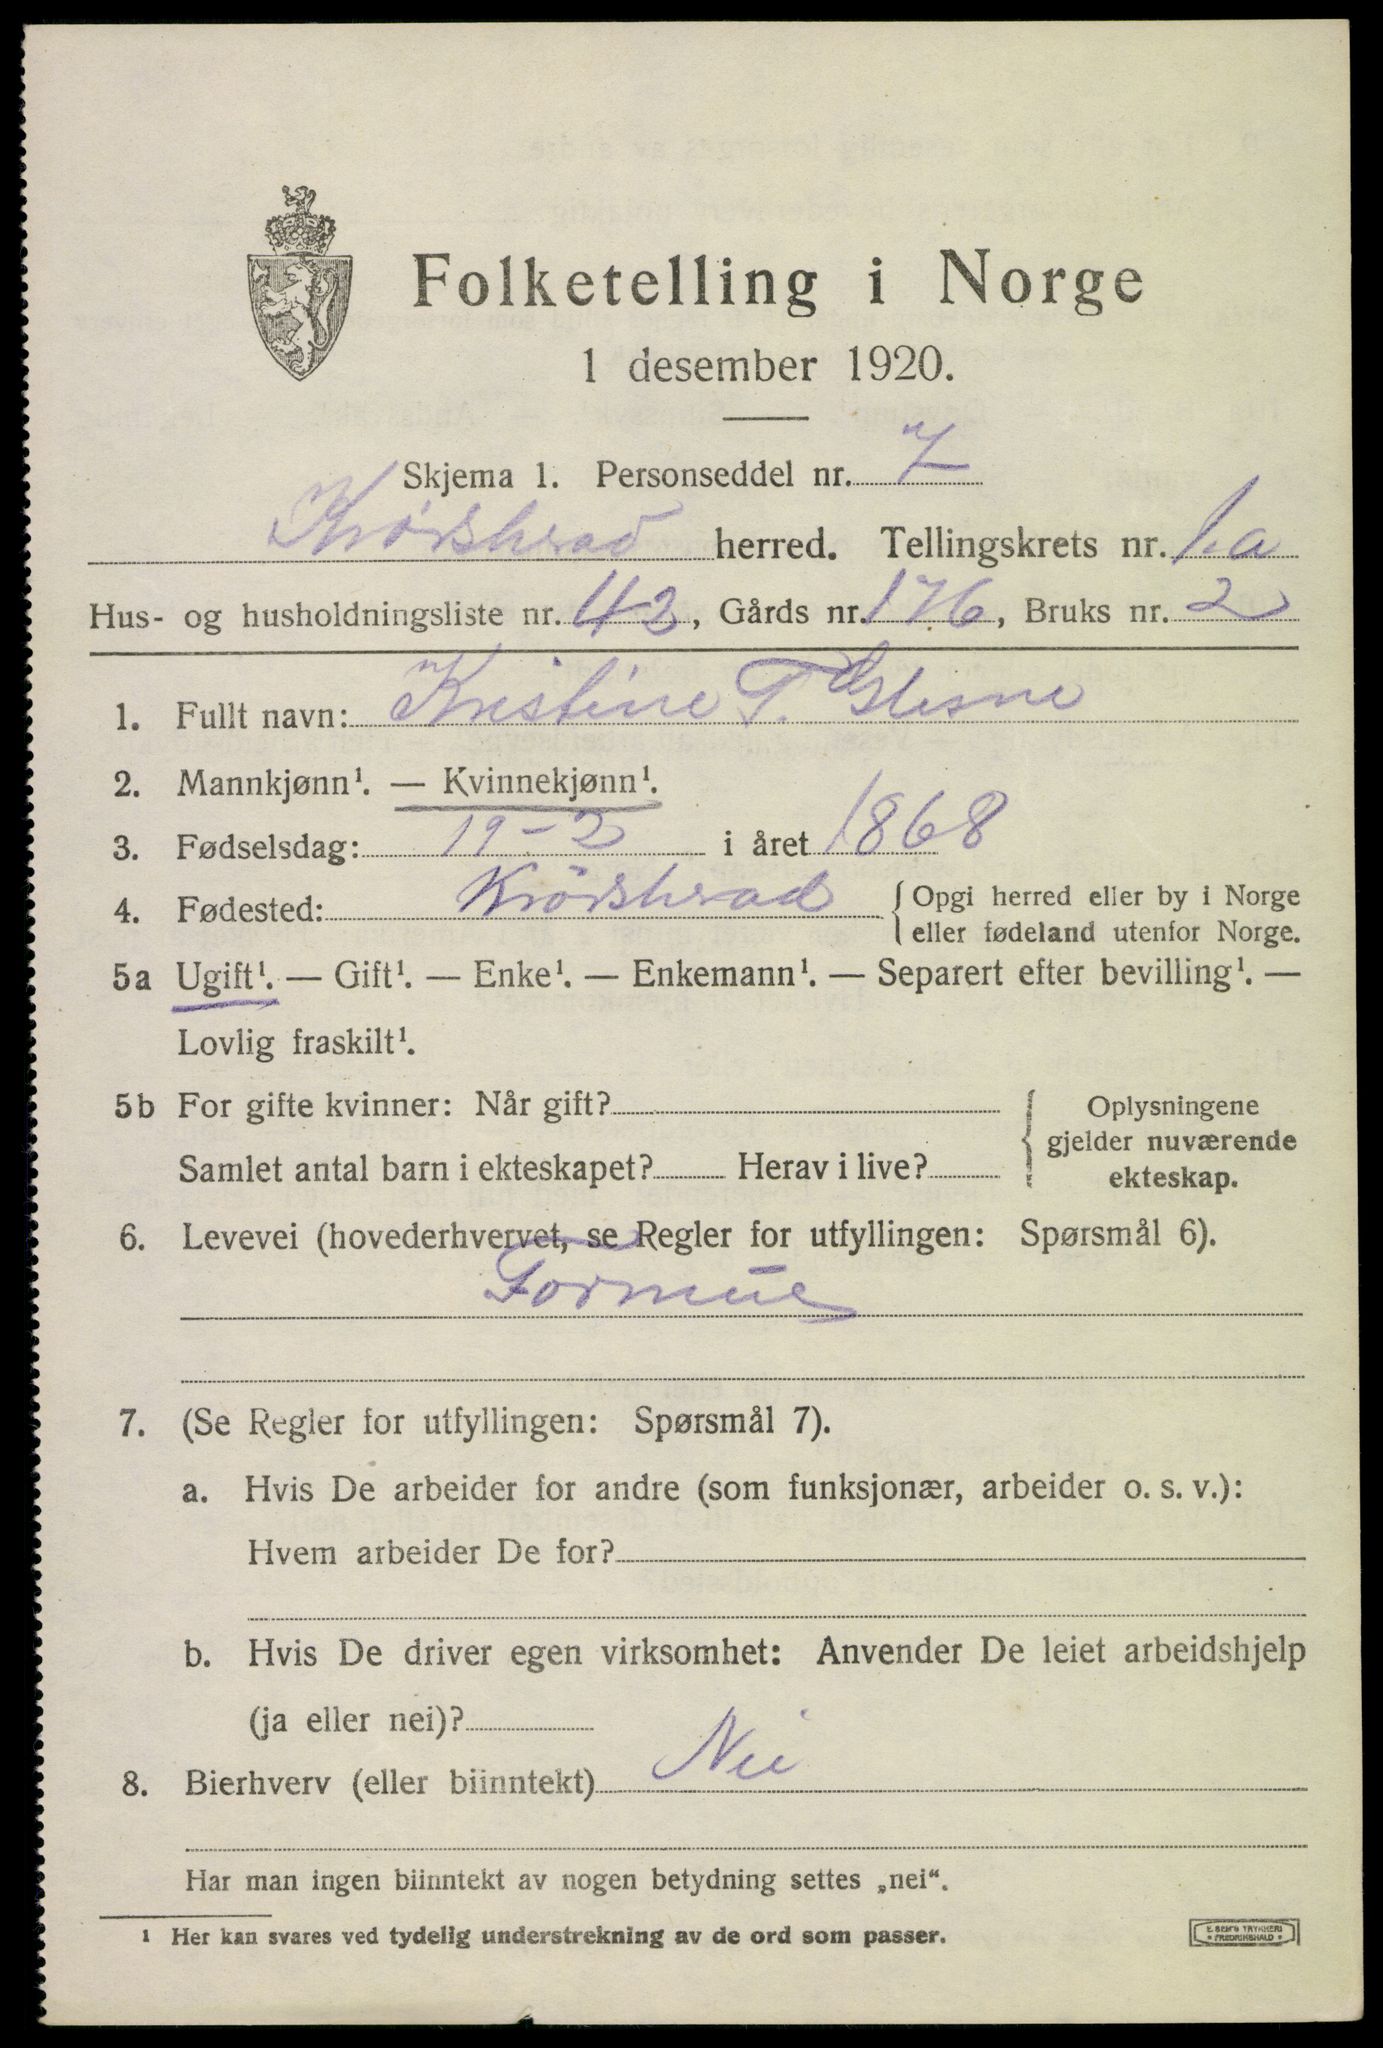 Folketelling i Norge
1 desember 1920.
Skjema 1. Personseddel nr. 7
Krødsherad herred. Tellingskrets nr. 1.a
Hus- og husholdningsliste nr. 42, Gårds nr. 176, Bruks nr. 2
1. Fullt navn: Kristine T. Glesne
2. Mannkjønn¹. — Kvinnekjønn¹.
3. Fødselsdag: 19-2 i året 1868
4. Fødested: Krödsherad { Opgi herred eller by i Norge
eller fødeland utenfor Norge.
5a Ugift¹. — Gift¹. — Enke¹. — Enkemann¹. — Separert efter bevilling¹. —
Lovlig fraskilt¹.
5b For gifte kvinner: Når gift?
Samlet antal barn i ekteskapet? Herav i live?
{ Oplysningene
gjelder nuværende
ekteskap.
6. Levevei (hovederhvervet, se Regler for utfyllingen: Spørsmål 6).
Formue
7. (Se Regler for utfyllingen: Spørsmål 7).
a. Hvis De arbeider for andre (som funksjonær, arbeider o. s. v.):
Hvem arbeider De for?
b. Hvis De driver egen virksomhet: Anvender De leiet arbeidshjelp
(ja eller nei)?
8. Bierhverv (eller biinntekt) Nei
Har man ingen biinntekt av nogen betydning settes „nei“.
¹ Her kan svares ved tydelig understrekning av de ord som passer.
E. SEM'S TRYKKERI
• FREDRIKSHALD •